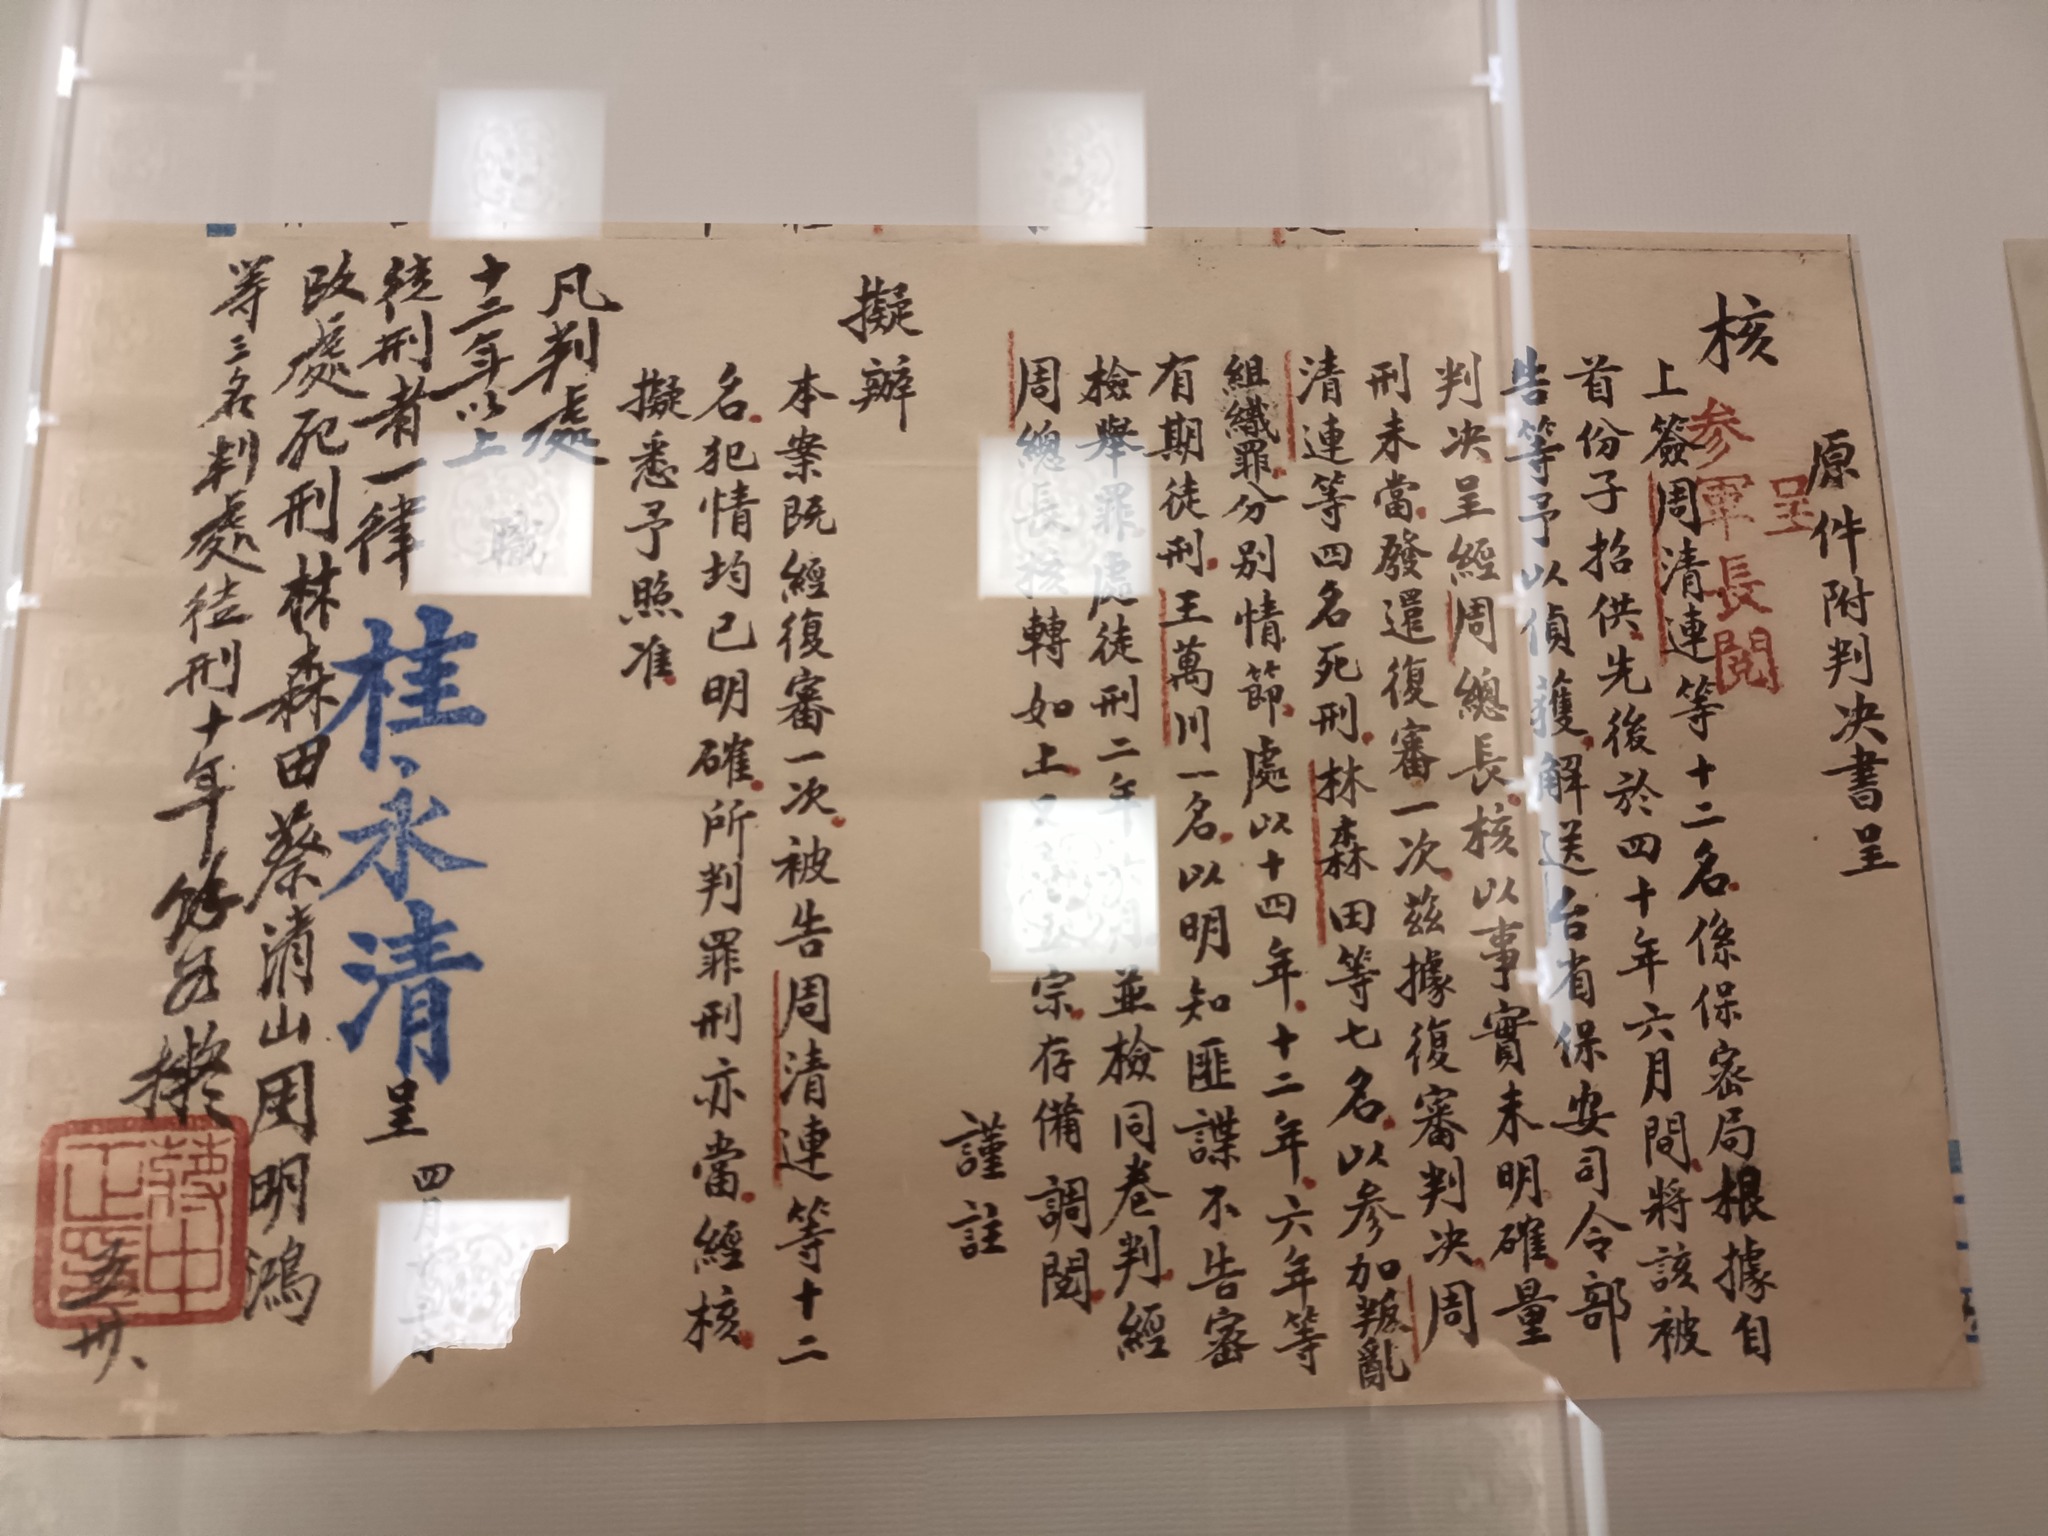 原件附判决書呈
呈
參軍長閱
核
上簽周清連等十二名係保密局根據自
首份子招供先後於四十年六月間將該被
告等予以偵獲解送台省保安司令部
判决呈經周總長核以事實未明確量
刑未當發還復審一次茲據復審判决周
清連等四名死刑林森田等七名以參加叛亂
組織罪分別情節處以十四年十二年六年等
有期徒刑王萬川一名以明知匪諜不告密
檢舉罪處徒刑二年並檢同卷判經
周總長核轉如上宗存備調閱
謹註
擬辦
本案既經復審一次被告周清連等十二
名犯情均已明確所判罪刑亦當經核
擬悉予照准
職
桂永清呈
四月
凡判處
十二年以上
徒刑者一律
改處死刑林森田蔡清山周明鴻
等三名判處徒刑十年餘如擬
蔣中正
五卅